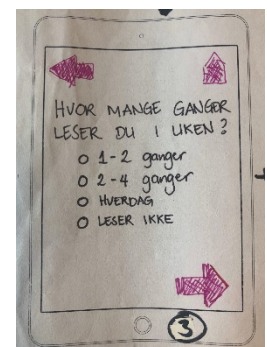 HVOR MANGE GANGER
LESER DU I UKEN?
1-2 ganger
2-4 ganger
HVERDAG
LESER IKKE
3